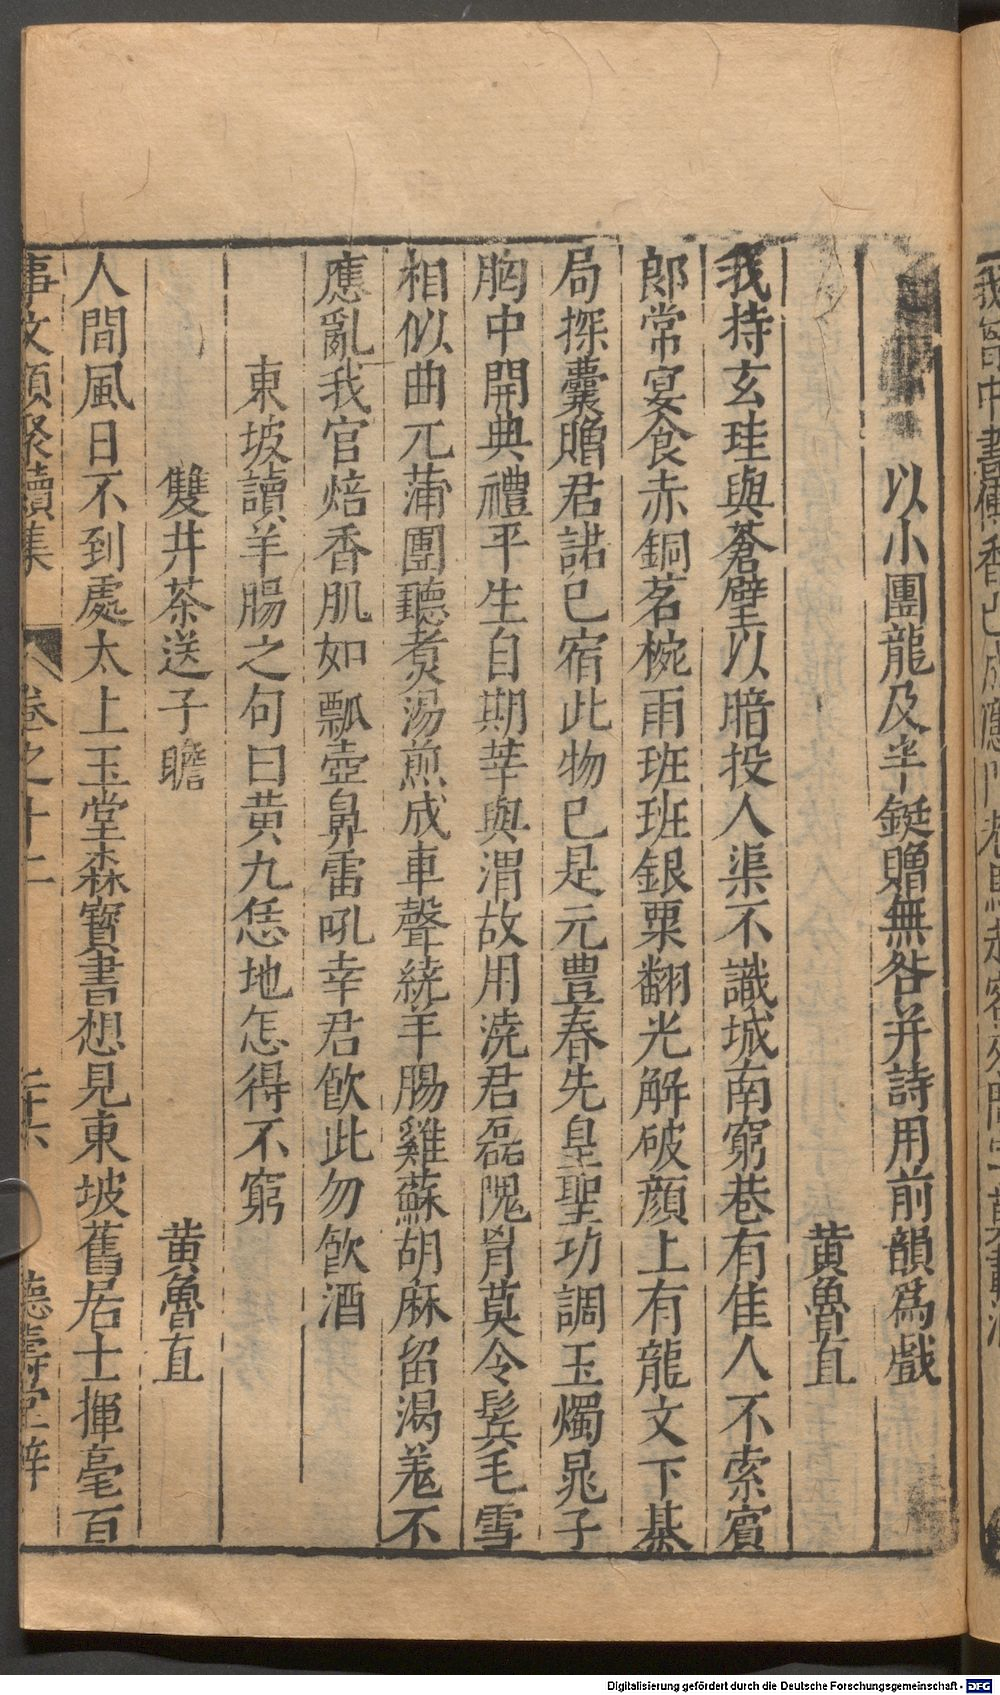 以小團龍及半鋌贈無咎并詩用前韻爲戲
黃魯直
我持玄珪與蒼璧以暗投人渠不識城南窮巷有佳人不索賓
郎常宴食赤銅茗椀雨班班銀粟翻光解破顔上有龍文下棊
局探囊贈君諾已宿此物已是元豊春先皇聖功調玉燭晁子
胸中開典禮平生自期莘與渭故用澆君磊隗胷莫令鬂毛雪
相似曲兀蒲團聽煮湯煎成車聲繞羊腸雞蘇胡麻留渴羌不
應亂我官焙香肌如瓢壺鼻雷吼幸君飮此勿飮酒
東坡讀羊腸之句曰黃九恁地怎得不窮
雙井茶送子瞻
黃魯直
人間風日不到處太上玉堂森寶書想見東坡舊居士揮毫百
事文類聚續集
卷之十二
二十六
德壽堂梓
Digitalisierung gefördert durch die Deutsche Forschungsgemeinschaft - DFG